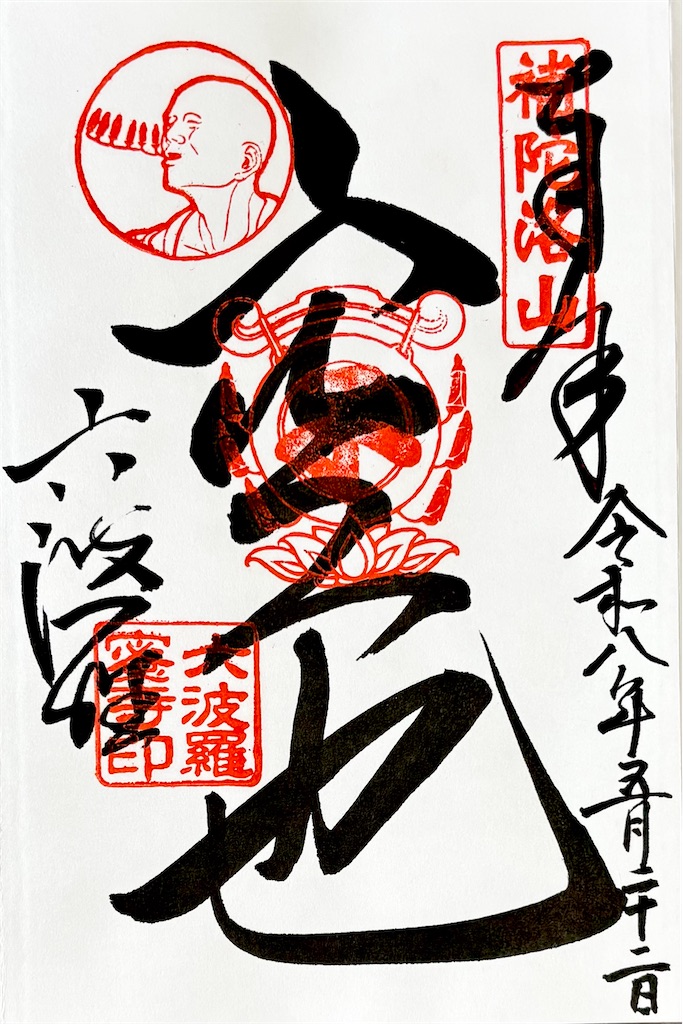 奉拝
補陀洛山
令和八年五月二十二日
空也
六波羅
六波羅
蜜寺印